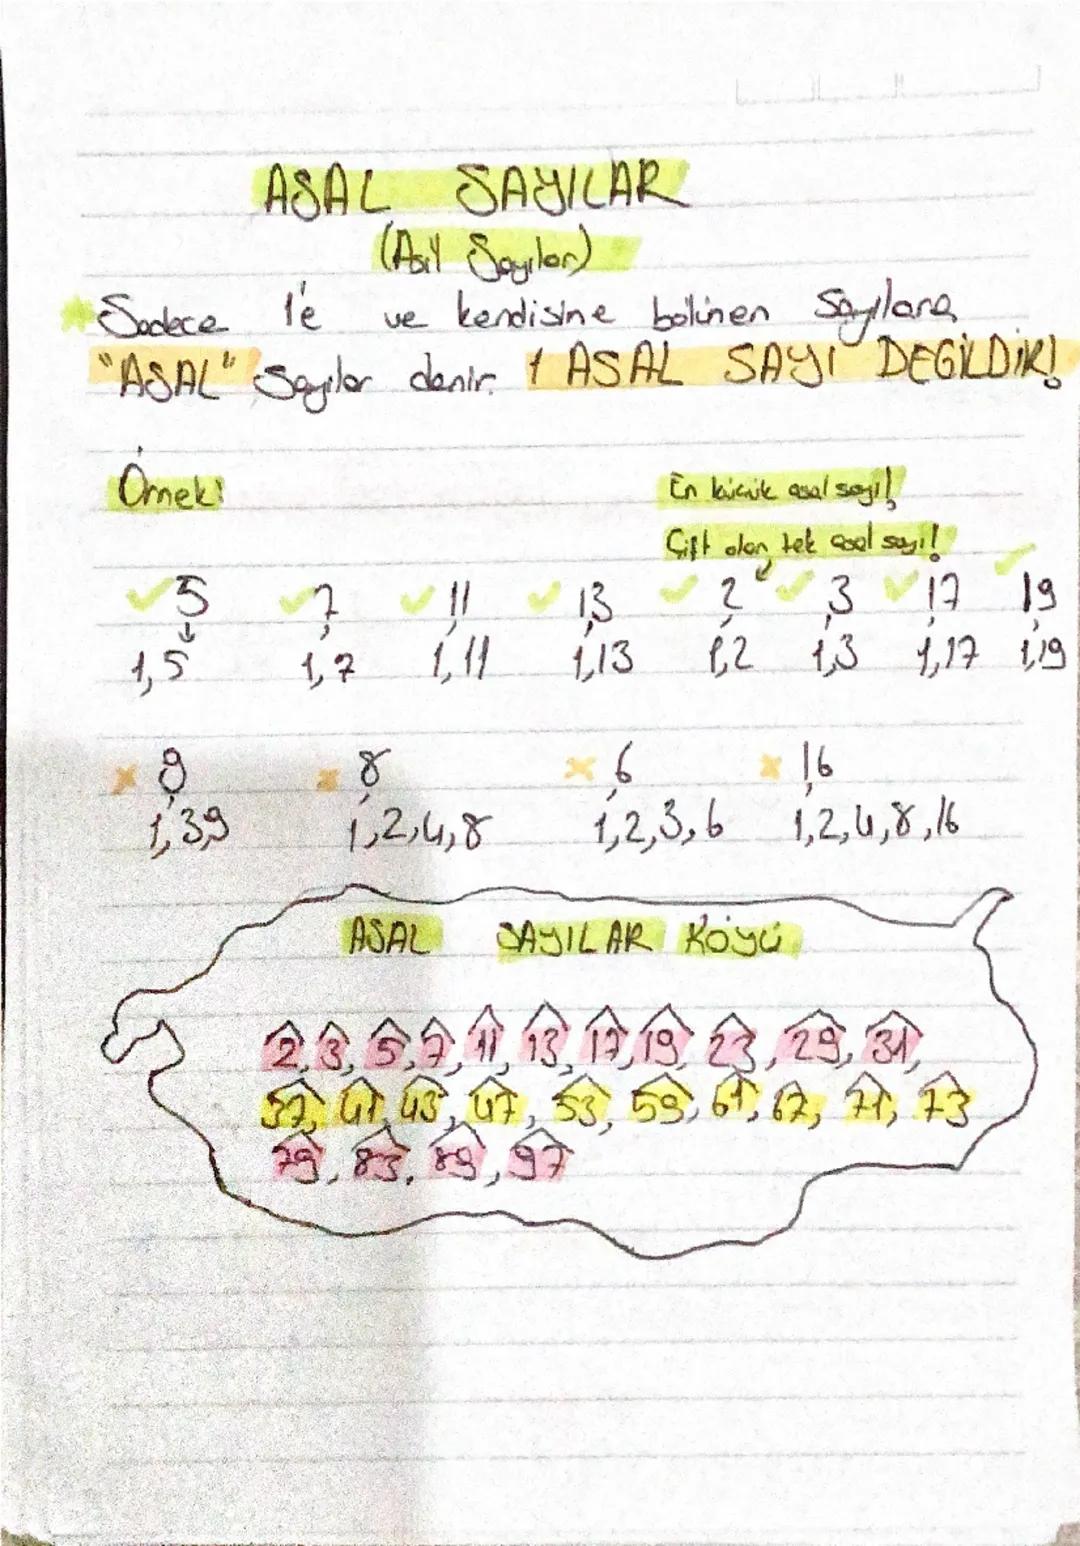 ASAL SAYILAR
(Asil Sayılar)
Sadece 1'e ve kendisine bölünen Sayılara
"ASAL" Sayılar denir. 1 ASAL SAYI DEĞİLDİR!
Örnek:
En küçük asal sayı!
Çift olan tek asal sayı!
5 7 11 13 2 3 17 19
1,5 1,7 1,11 1,13 1,2 1,3 1,17 1,19
9 8 6 16
1,3,9 1,2,4,8 1,2,3,6 1,2,4,8,16
ASAL SAYILAR KÖYÜ
2, 3, 5, 7, 11, 13, 17, 19, 23, 29, 31,
37, 41, 43, 47, 53, 59, 61, 67, 71, 73
79, 83, 89, 97